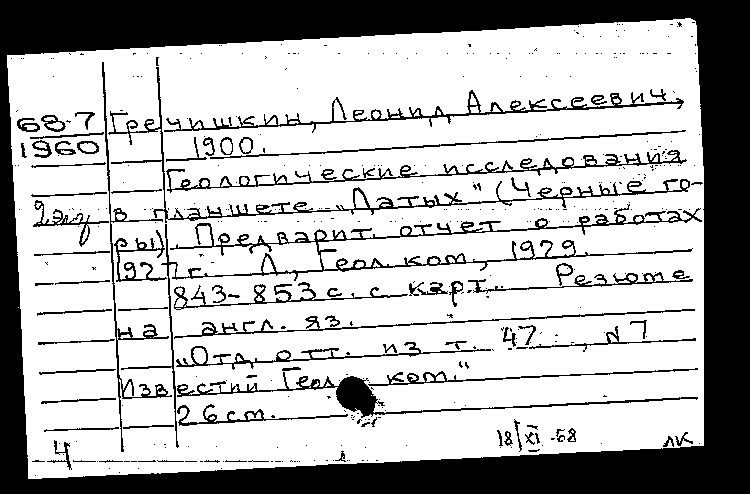 68-7 Гречишкин, Леонид Алексеевич,
1960 1900.
Геологические исследования
2 экз в планшете „Датых" (Черные го-
ры). Предварит. отчет о работах
1927 г. Л., Геол. ком., 1929.
843-853 с. с карт. Резюме
на англ. яз.
„Отд. отт. из т. 47, №7
Известий Геол. ком."
26 cm.
4 18/XI-68 ЛК